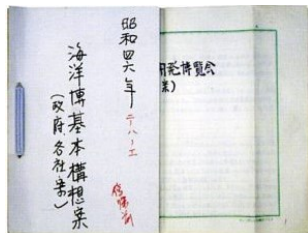 昭和四六年
海洋博基本構想案
(政府、各社案)
開発博覧会
案)